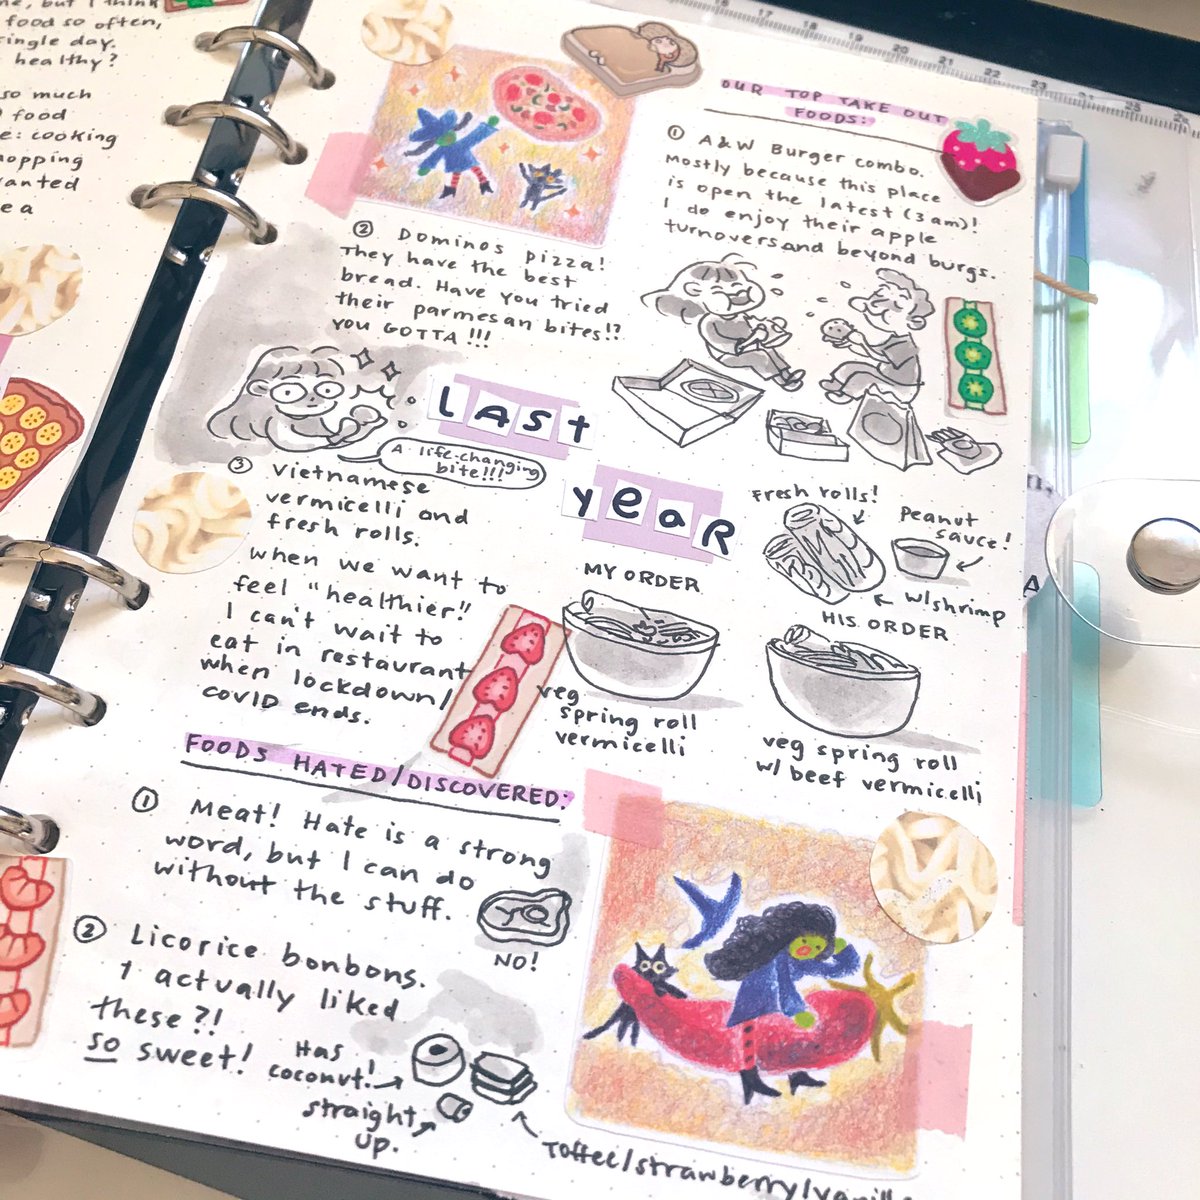 , but I think
food so often,
single day.
healthy?
so much
food
: cooking
opping
anted
ea
16
18
19
20
21
22
23
25
OUR TOP TAKE OUT
FOODS:
① A&W Burger combo.
Mostly because this place
is open the latest (3am)!
I do enjoy their apple
turnovers and beyond burgs.
② Dominos pizza!
They have the best
bread. Have you tried
their parmesan bites!?
You GOTTA!!!
A life-changing
bite!!!
LAST
YEAR
③ Vietnamese
vermicelli and
fresh rolls.
When we want to
feel "healthier"!
I can't wait to
eat in restaurant
when lockdown/
COVID ends.
Fresh rolls!
Peanut
sauce!
w/shrimp
MY ORDER
veg
spring roll
vermicelli
HIS ORDER
veg spring roll
w/ beef vermicelli
FOODS HATED/DISCOVERED:
① Meat! Hate is a strong
word, but I can do
without the stuff.
NO!
② Licorice bonbons.
I actually liked
these?!
so sweet!
Has
coconut!
straight
up.
Toffee/strawberry/vanilla
A